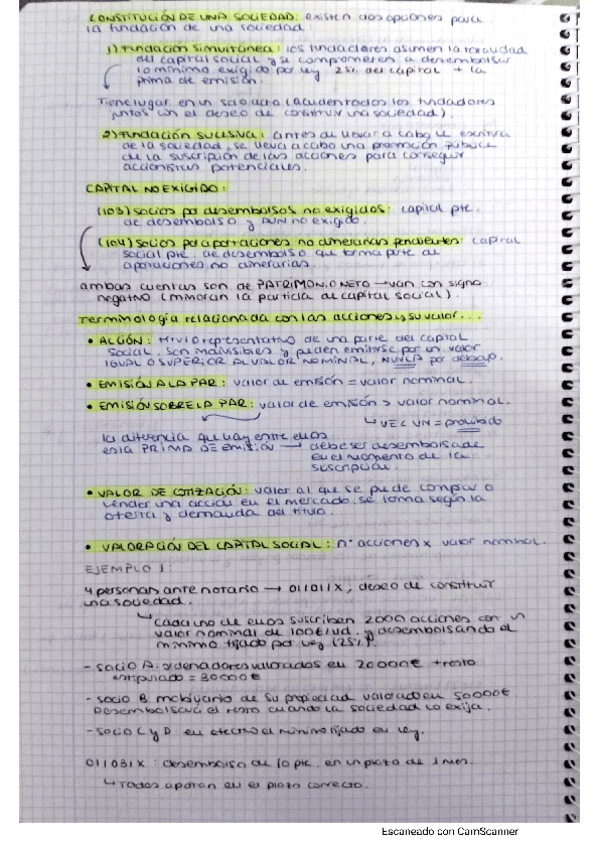 CONSTITUCIÓN DE UNA SOCIEDAD: existen dos opciones para
la fundación de una sociedad:
1) Fundación simultánea: los fundadores asumen la totalidad
del capital social y se comprometen a desembolsar
lo mínimo exigido por ley 25% del capital + la
prima de emisión.
Tiene lugar en un solo acto (acuden todos los fundadores
juntos con el deseo de constituir una sociedad).
2) Fundación sucesiva: antes de llevar a cabo la escritura
de la sociedad, se lleva a cabo una promoción pública
de la suscripción de las acciones para conseguir
accionistas potenciales.
CAPITAL NO EXIGIDO:
(103) socios por desembolsos no exigidos: capital pte.
de desembolso y AUN no exigido.
(104) socios por aportaciones no dinerarias pendientes: capital
social pte. de desembolso que forma parte de
aportaciones no dinerarias.
ambas cuentas son de PATRIMONIO NETO → van con signo
negativo (minoran la partida al capital social).
Terminología relacionada con las acciones y su valor...
• ACCIÓN: título representativo de una parte del capital
social. Son indivisibles y pueden emitirse por un valor
IGUAL O SUPERIOR AL VALOR NOMINAL, NUNCA por debajo.
• EMISIÓN A LA PAR: valor de emisión = valor nominal.
• EMISIÓN SOBRE LA PAR: valor de emisión > valor nominal.
↳ VE < VN = prohibido
la diferencia que hay entre ellos
es la PRIMA DE EMISIÓN → debe ser desembolsada
en el momento de la
suscripción.
• VALOR DE COTIZACIÓN: valor al que se puede comprar o
vender una acción en el mercado. Se forma según la
oferta y demanda del título.
• VALORACIÓN DEL CAPITAL SOCIAL: nº acciones x valor nominal.
EJEMPLO 1:
4 personas ante notario → 01/01/X, deseo de constituir
una sociedad.
↳ Cada uno de ellos suscriben 2000 acciones con un
valor nominal de 100€/ud. y desembolsando el
mínimo fijado por ley (25%).
- Socio A: ordenadores valorados en 20000€ + resto
estipulado = 30000€
- Socio B mobiliario de su propiedad valorado en 50000€
Desembolsará el resto cuando la sociedad lo exija.
- Socio C y D en efectivo el mínimo fijado en ley.
01/03/X: desembolso de lo pte. en un plazo de 1 mes.
↳ Todos aportan en el plazo correcto.
Escaneado con CamScanner